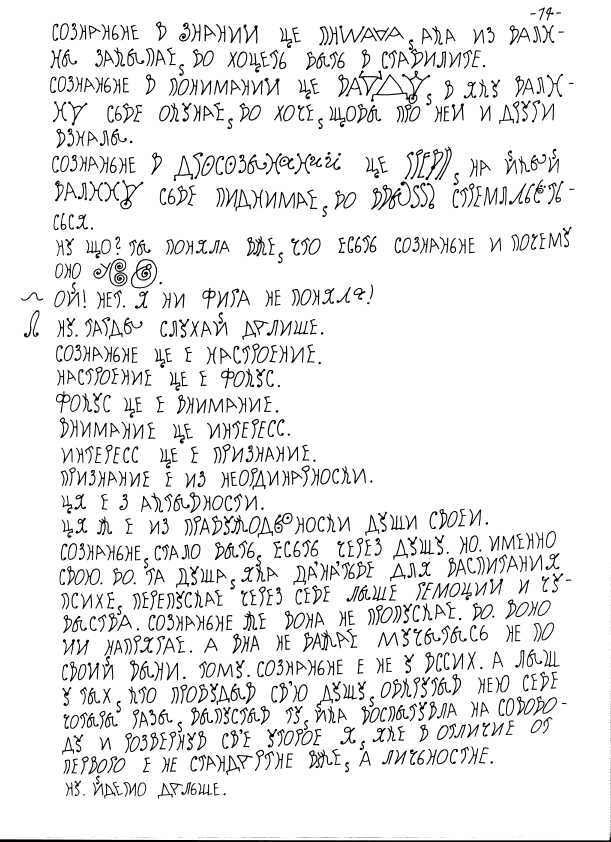 -14-
СОЗНАНЬНЕ В ЗНАНИИ ЦЕ АКА ИЗ ВАЛЖ-
НЫ ЗАКЫПАЕ, ВО ХОЦЕТЬ ВЫТЬ В СТАВИЛИТЕ.
СОЗНАНЬНЕ В ПОНИМАНИИ ЦЕ В ЯКУ ВАЛЖ-
НУ СЬВЕ ОКУНАЕ, ВО ХОЧЕ, ЩОВЫ ПРО НЕИ И ДРУГИ
ВЗНАЛЫ.
СОЗНАНЬНЕ В ЦЕ НА ЙКЫЙ
СЬВЕ ПИДНИМАЕ, ВО СТРЕМЛЬЕТЬ-
СЬСЯ.
НУ ЩО? ТЫ ПОНЯЛА ВЖЕ, ЧТО ЕСЬТЬ СОЗНАНЬНЕ И ПОЧЕМУ
ОНО
ОЙ! НЕТ. Я НИ ФИГА НЕ ПОНЯЛА!
НУ. ТАГДЫ СЛУХАЙ ДАЛИШЕ.
СОЗНАНЬНЕ ЦЕ Е НАСТРОЕНИЕ.
НАСТРОЕНИЕ ЦЕ Е ФОКУС.
ФОКУС ЦЕ Е ВНИМАНИЕ.
ВНИМАНИЕ ЦЕ ИНТЕРЕСС.
ИНТЕРЕСС ЦЕ Е ПРИЗНАНИЕ.
ПРИЗНАНИЕ Е ИЗ НЕОРДИНАРНОСТИ.
ЦЯ Е З АКТЫВНОСТИ.
ЦЯ Ж Е ИЗ ДУШИ СВОЕИ.
СОЗНАНЬНЕ, СТАЛО ВЫТЬ, ЕСЬТЬ ЧЕРЕЗ ДУШУ. НО. ИМЕННО
СВОЮ. ВО. ТА ДУША, ЯКА ДАНАТЬВЕ ДЛЯ ВАСПИТАНИЯ
ПСИХЕ, ПЕРЕПУСКАЕ ЧЕРЕЗ СЕВЕ ЛЫШЕ ГЕМОЦИИ И ЧУ-
ВЫСТВА. СОЗНАНЬНЕ ЖЕ ВОНА НЕ ПРОПУСКАЕ. ВО. ВОНО
ИИ НАПРЯГАЕ. А ВНА НЕ ВАЖАЕ МУЧЫТЫСЬ НЕ ПО
СВОИЙ ВЫНИ. ТОМУ. СОЗНАНЬНЕ Е НЕ У ВССИХ. А ЛЫШ
У ТЫХ, КТО ПРОВУДЫВ СВ'Ю ДУШУ, ОВКРУТЫВ НЕЮ СЕВЕ
ЧОТЫРЫ РАЗЫ, ВЫПУСТЫВ ТУ, ЙКА ВОСПЫТУВЛА НА СОВОВО-
ДУ И РОЗВЕРНУВ СВ'Е УТОРОЕ Я, ЯКЕ В ОТЛИЧИЕ ОТ
ПЕРВОГО Е НЕ СТАНДАРТНЕ ВЖЕ, А ЛИЧЬНОСТНЕ.
НУ. ЙДЕМО ДАЛЬШЕ.